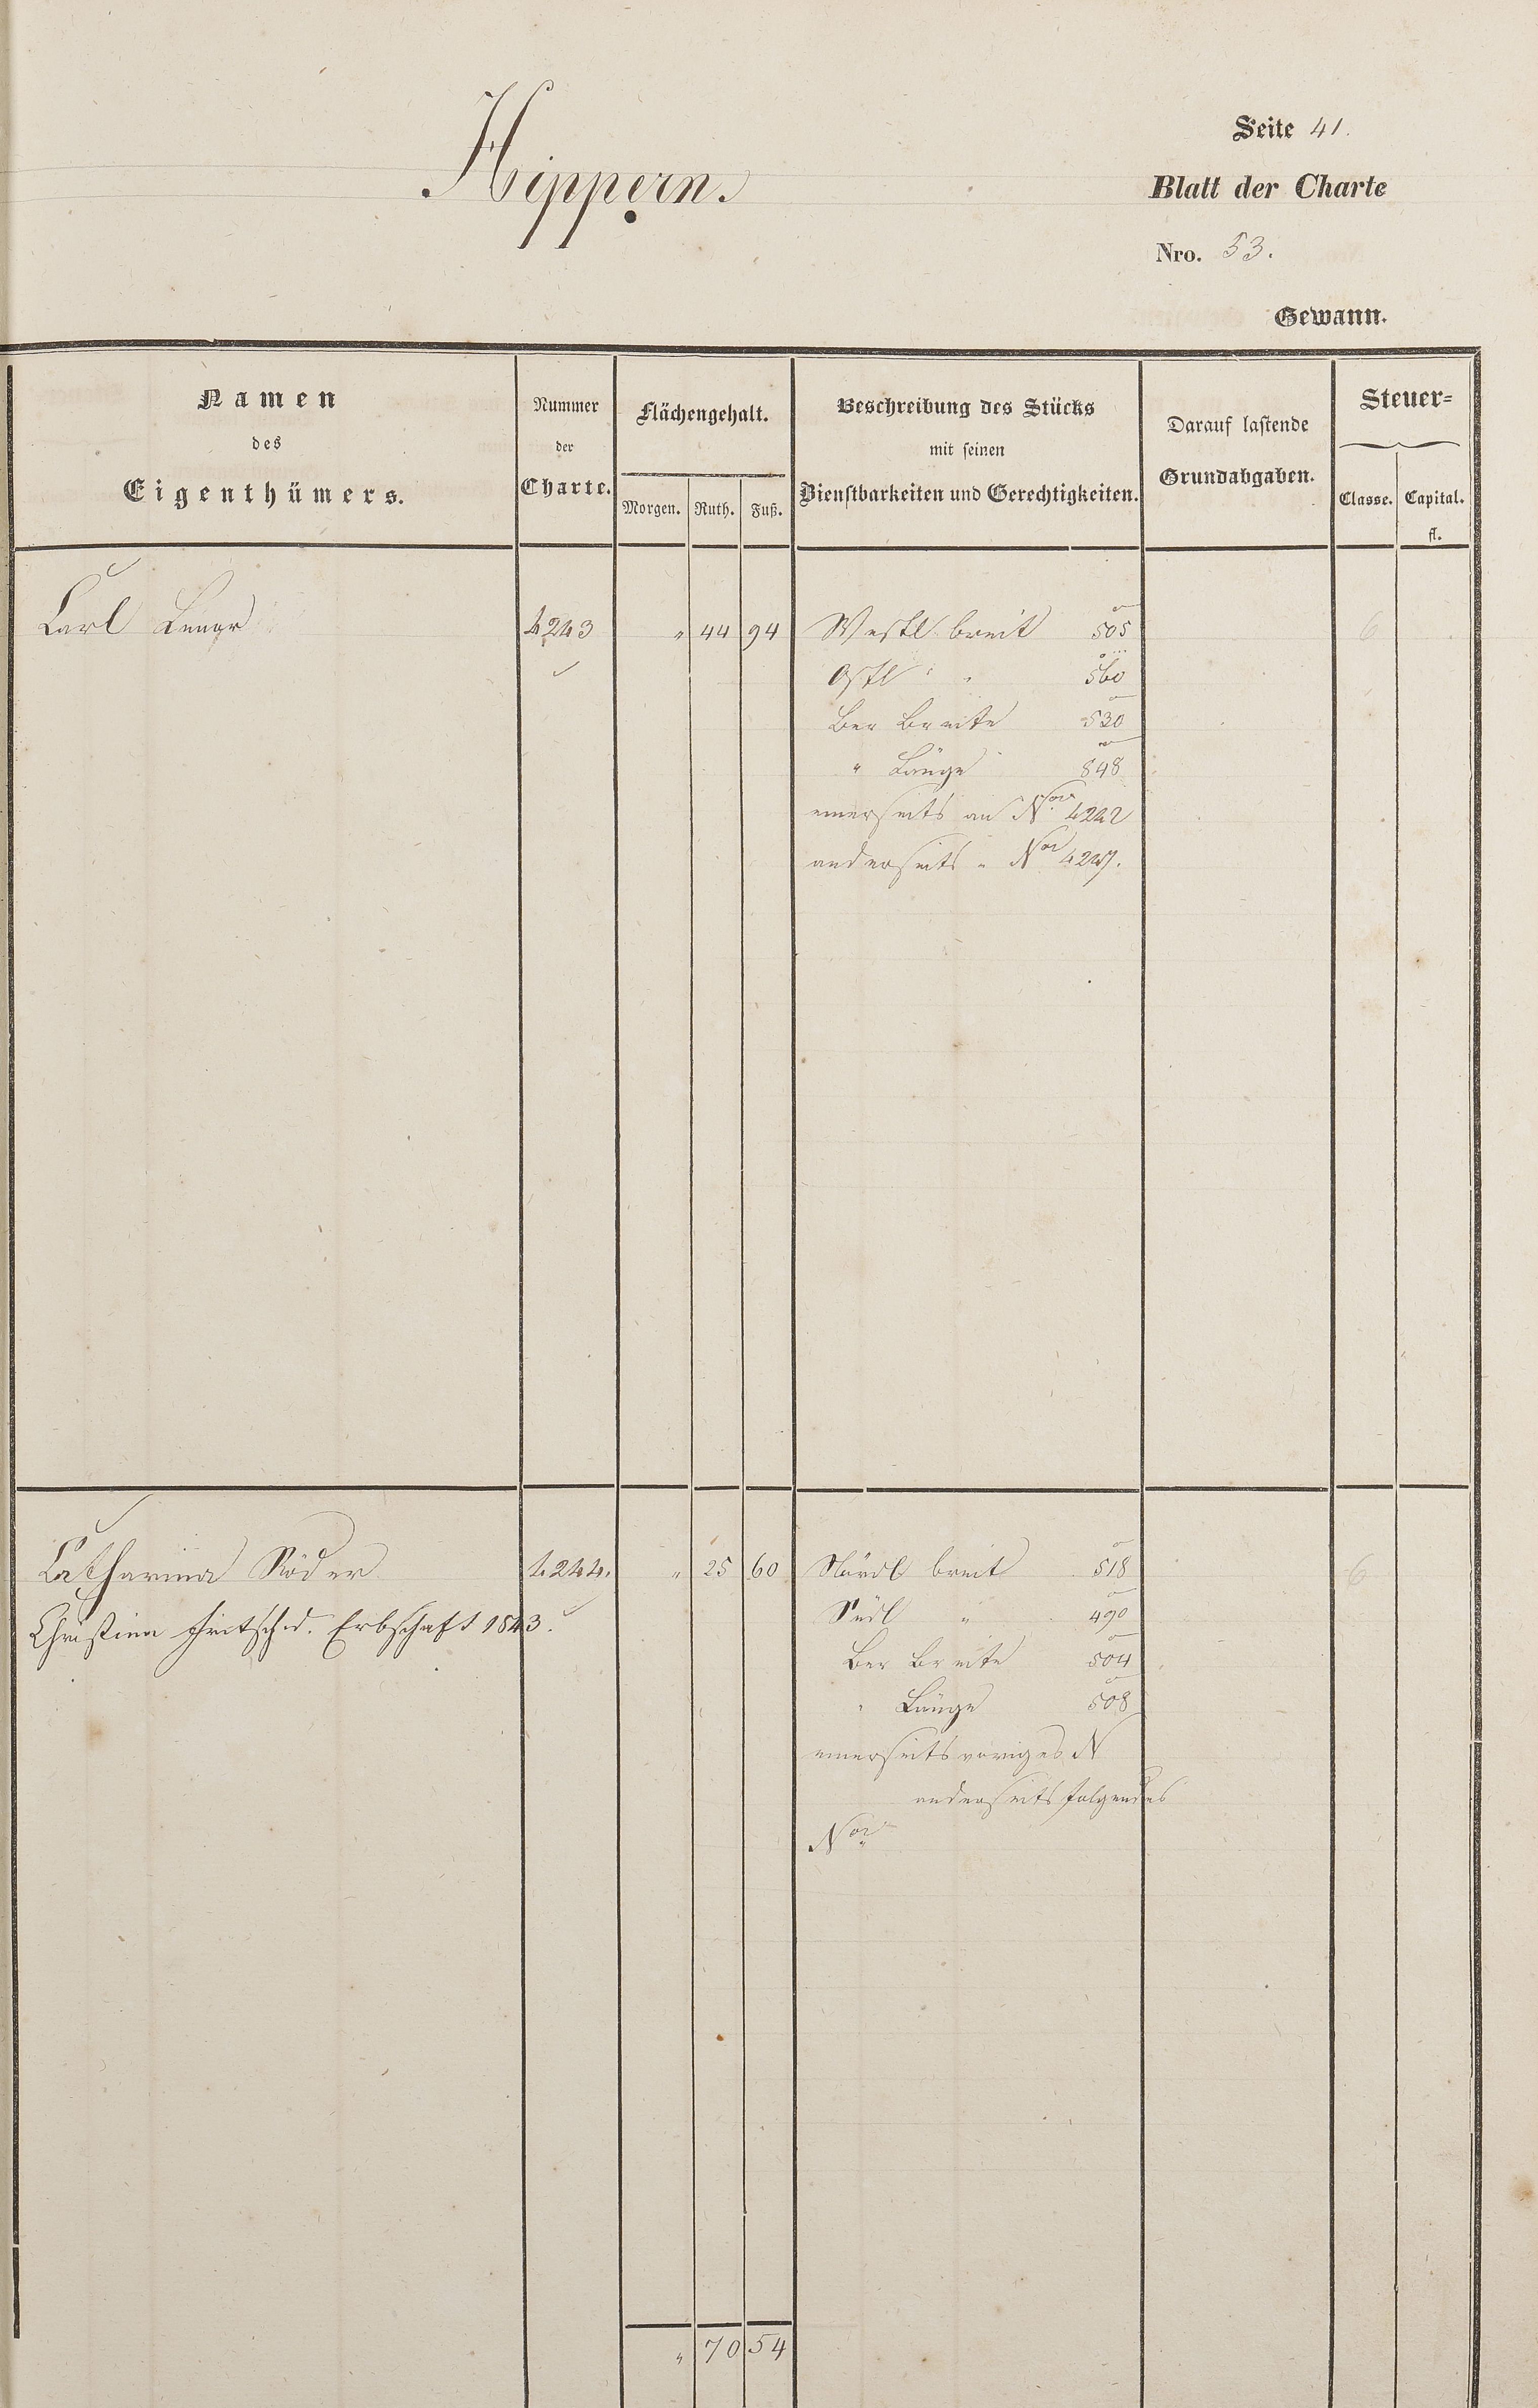 Seite 41.
Hippern.
Blatt der Charte
Nro. 53.
Gewann.
Namen
des
Eigenthümers.
Nummer
der
Charte.
Flächengehalt.
Morgen. Ruth. Fuß.
Beschreibung des Stücks
mit seinen
Dienstbarkeiten und Gerechtigkeiten.
Darauf lastende
Grundabgaben.
Steuer=
Classe. Capital.
fl.
Carl 4243 " 44 94 Westl breit 505 6
Ostl " " 560
Ber Breite 530
" Länge 848
einerseits an Nro 4242
anderseits " Nro
Catharina Röder 4244. " 25 60 Nördl breit 518 6
Christina Fritsch d. Erbschaft 1843. Südl " 490
Ber Breite 504
" Länge 508
einerseits voriges N
anderseits folgendes
Nro
" 70 54